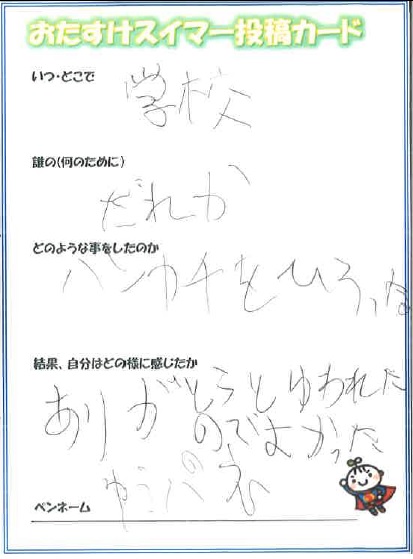 おたすけスイマー投稿カード
いつ・どこで
学校
誰の(何のために)
だれか
どのような事をしたのか
ハンカチをひろった
結果、自分はどの様に感じたか
ありがとうとゆわれた
のでよかった
ペンネーム